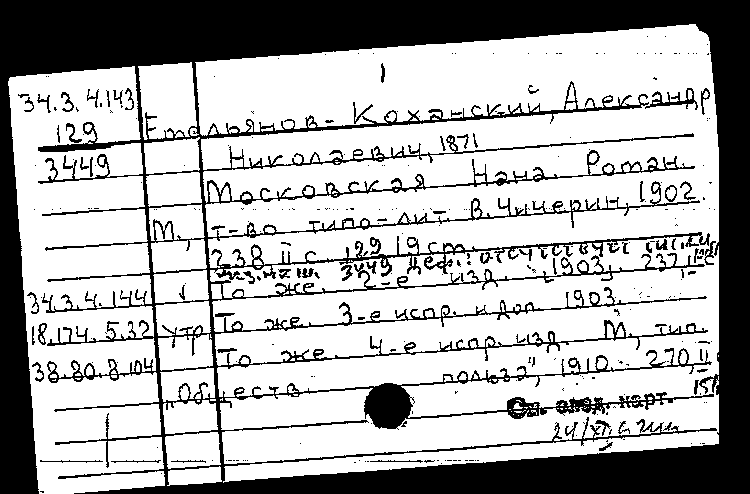 1
34.3.4.143
129
3449
Емельянов-Коханский, Александр
Николаевич, 1871
Московская Нана. Роман.
М., т-во типо-лит. В. Чичерин, 1902.
238 II с. 129 19 ст.
3449 Деф.: отсутствует тит. л.
34.3.4.144 То же. 2-е изд. 1903. 237,
18.174.5.32 утр То же. 3-е испр. и доп. 1903.
38.80.8.104 То же. 4-е испр. изд. М., тип.
„Обществ. польза", 1910. 270, II с
См. след. карт.